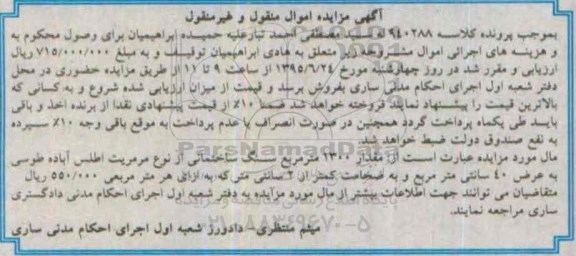 آگهی مزایده اموال منقول و غیرمنقول
بموجب پرونده کلاسه ۹۴۰۲۸۸ له مصطفی احمد تبارعلیه حمیده ابراهیمیان برای وصول محکوم به
و هزینه های اجرائی اموال مشروحه زیر متعلق به هادی ابراهیمیان توقیف و به مبلغ ۷۱۵/۰۰۰/۰۰۰ ریال
ارزیابی و مقرر شد در روز چهارشنبه مورخ ۱۳۹۵/۶/۲۴ از ساعت ۹ تا ۱۱ از طریق مزایده حضوری در محل
دفتر شعبه اول اجرای احکام مدنی ساری بفروش برسد و قیمت از میزان ارزیابی شده شروع و به کسانی که
بالاترین قیمت را پیشنهاد نمایند فروخته خواهد شد ضمنا ۱۰٪ از قیمت پیشنهادی نقدا از برنده اخذ و باقی
بایسد طی یکماه پرداخت گردد همچنین در صورت انصراف یا عدم پرداخت به موقع باقی وجه ۱۰٪ سپرده
به نفع صندوق دولت ضبط خواهد شد.
مال مورد مزایده عبارت است از مقدار ۱۳۰۰ مترمربع سنگ ساختمانی از نوع مرمریت اطلس آباده طوسی
به عرض ۴۰ سانتی متر مربع و به ضخامت کمتر از ۲ سانتی متر که به ازای هر متر مربعی ۵۵۰/۰۰۰ ریال
متقاضیان می توانند جهت اطلاعات بیشتر از مال مورد مزایده به دفتر شعبه اول اجرای احکام مدنی دادگستری
ساری مراجعه نمایند.
میثم منتظری- دادورز شعبه اول اجرای احکام مدنی ساری
ParsNamadData
۰۲۱-۸۸۳۴۹۶۷۰-۵